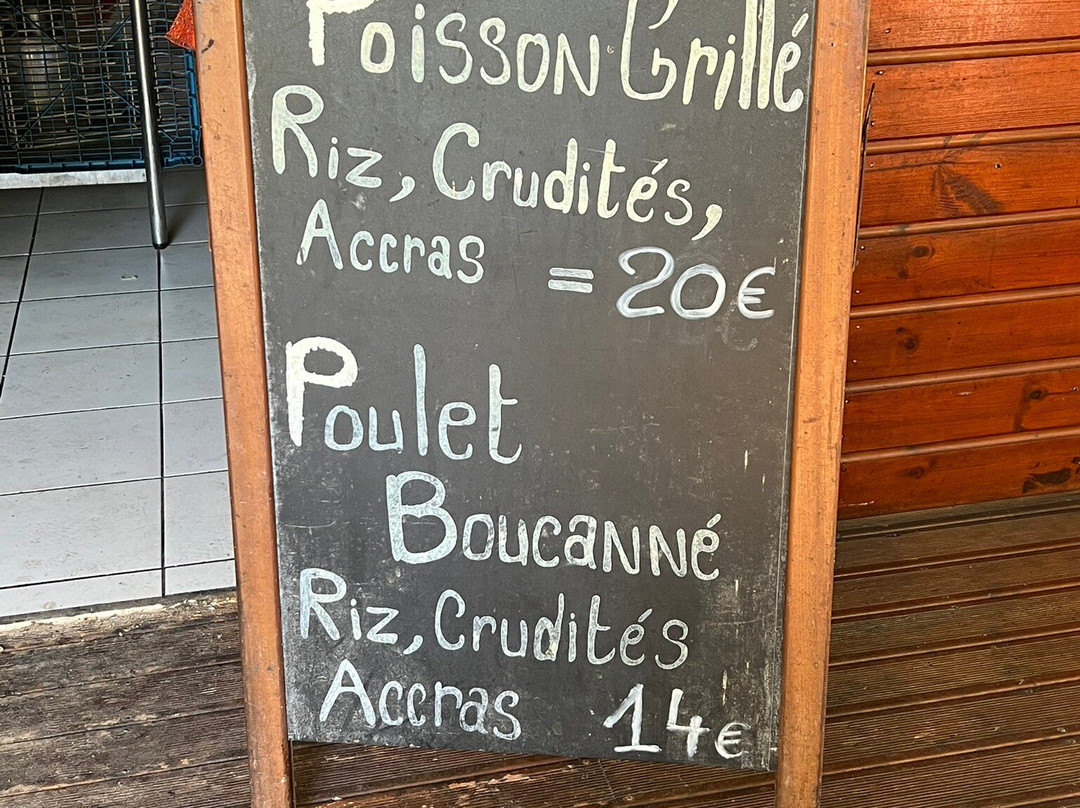 Poisson Grillé
Riz, Crudités,
Accras = 20€
Poulet
Boucanné
Riz, Crudités
Accras 14€